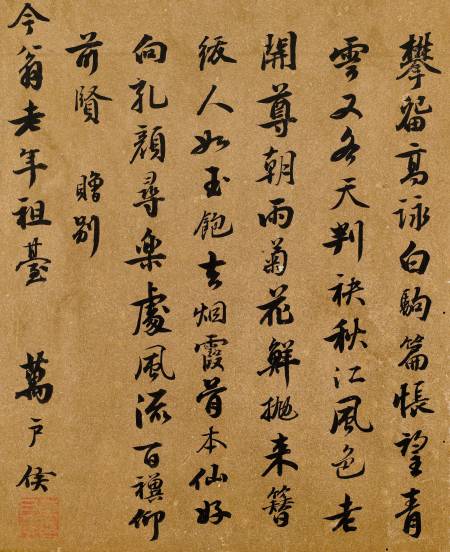 攀留高詠白駒篇悵望青
雲又各天判袂秋江風色老
開尊朝雨菊花鮮拋来簪
紱人如玉飽去烟霞骨本仙好
向孔顏尋樂處風流百禩仰
前賢 贈別
今翁老年祖臺 萬戶侯